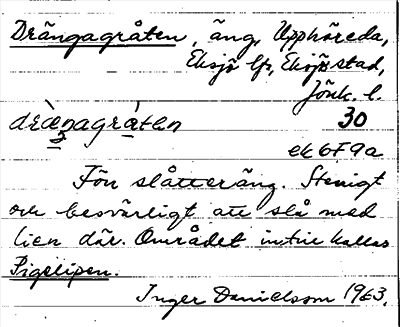 Drängagråten, äng, Upphöreda,
Eksjö lfs, Eksjö stad,
Jönk. l.
drænagrátən 30
ek 6F9a
Förr slåtteräng. Stenigt
och besvärligt att slå med
lien där. Området intill kallas
Pigelipen.
Inger Danielsson 1963.